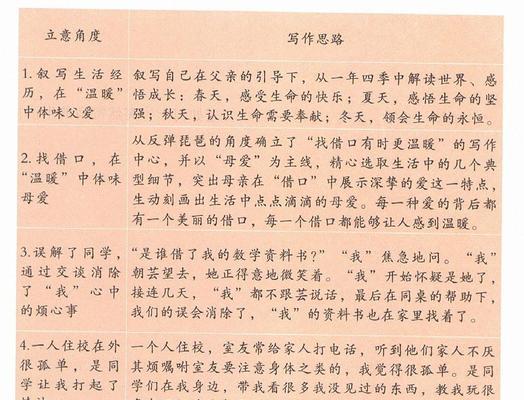 立意角度 写作思路
1.叙写生活经
历，在“温暖”
中体味父爱
叙写自己在父亲的引导下，从一年四季中解读世界、感
悟成长：春天，感受生命的快乐；夏天，感悟生命的坚
强；秋天，认识生命需要奉献；冬天，领会生命的永恒。
2.找借口，在
“温暖”中体味
母爱
从反弹琵琶的角度确立了“找借口有时更温暖”的写作
中心，并以“母爱”为主线，精心选取生活中的几个典
型细节，突出母亲在“借口”中展示深挚的爱这一特点，
生动刻画出生活中点点滴滴的母爱。每一种爱的背后都
有一个美丽的借口，每一个借口都能够让人感到温暖。
3.误解了同学，
通过交谈消除
了“我”心中
的烦心事
“是谁借了我的数学资料书？”“我”焦急地问。“我”
朝芸望去，她正得意地微笑着。“我”开始怀疑是她了，
接连几天，“我”都不跟芸说话，最后在同桌的帮助下，
我们的误会消除了，“我”的资料书也在家里找着了。
4.一人住校在外
很孤单，是同
学让我打起了
一个人住校，室友常给家人打电话，听到他们家人不厌
其烦嘱咐室友要注意身体之类的，我觉得很孤单。是同
学们在我身边，带我看很多我没见过的东西，教我玩很